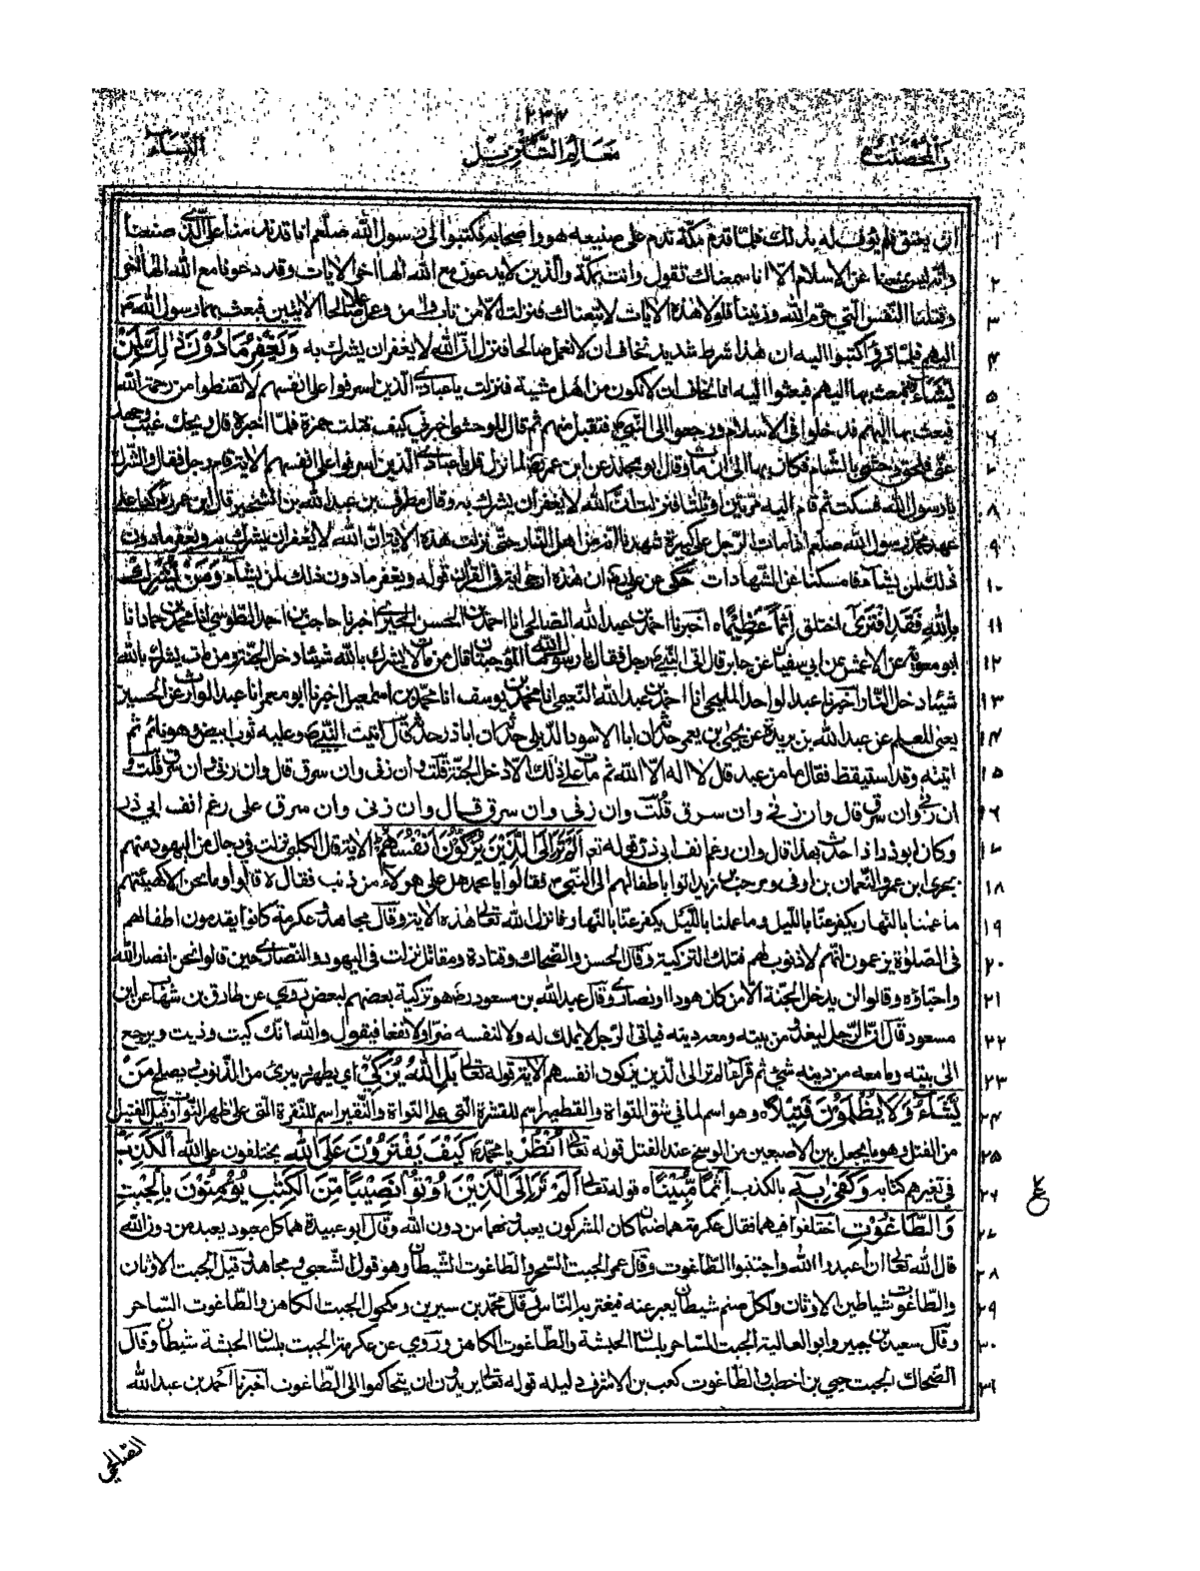 ۲۳۴
والمحصنت ۵
معالم التنزيل
النساء
ان يعتق فلم يوف له بذلك فلما قدم مكة ندم على صنيعه هو واصحابه فكتبوا الى رسول الله صلعم انا قد ندمنا على الذي صنعنا ۱
وانه ليس يمنعنا عن الاسلام الا انا سمعناك تقول وانت بمكة والذين لا يدعون مع الله الها اخر الايات وقد دعونا مع الله الها اخر ۲
وقتلنا النفس التي حرم الله وزنينا فلولا هذه الايات لاتبعناك فنزلت الا من تاب وامن وعمل عملا صالحا الايتين فبعث بهما رسول الله ۳
اليهم فلما قرؤا كتبوا اليه ان هذا شرط شديد نخاف ان لا نعمل صالحا فنزل ان الله لا يغفر ان يشرك به ويغفر ما دون ذلك لمن ۴
يشاء فبعث بها اليهم فبعثوا اليه انا نخاف ان لا نكون من اهل مشية فنزلت يا عبادي الذين اسرفوا على انفسهم لا تقنطوا من رحمة الله ۵
فبعث بها اليهم فدخلوا في الاسلام ورجعوا الى النبي فقبل منهم ثم قال لوحشي اخبرني كيف قتلت حمزة فلما اخبره قال ويحك غيب وجهك ۶
عني فلحق وحشي بالشام فكان بها الى ان مات وقال ابو مجلز عن ابن عمر لما نزل قل يا عبادي الذين اسرفوا على انفسهم الاية قام رجل فقال والشرك ۷
يا رسول الله فسكت ثم قام اليه مرتين او ثلثا فنزلت ان الله لا يغفر ان يشرك به وقال مطرف بن عبد الله بن الشخير قال ابن عمر كنا على ۸
عهد رسول الله صلعم اذا مات الرجل على كبيرة شهدنا انه من اهل النار حتى نزلت هذه الاية ان الله لا يغفر ان يشرك به ويغفر ما دون ۹
ذلك لمن يشاء فامسكنا عن الشهادات حكي عن علي ان هذه ارجى اية في القران قوله ويغفر ما دون ذلك لمن يشاء ومن يشرك ۱۰
بالله فقد افترى اختلق اثما عظيما ه اخبرنا احمد بن عبد الله الصالحي انا احمد بن الحسن الحيري اخبرنا حاجب بن احمد الطوسي انا محمد بن حماد انا ۱۱
ابو معوية عن الاعمش عن ابي سفيان عن جابر قال اتى النبي رجل فقال يا رسول الله ما الموجبتان قال من مات لا يشرك بالله شيئا دخل الجنة ومن مات يشرك بالله ۱۲
شيئا دخل النار اخبرنا عبد الواحد المليحي انا احمد بن عبد الله النعيمي انا محمد بن يوسف انا محمد بن اسمعيل اخبرنا ابو معمر انا عبد الوارث عن الحسين ۱۳
يعني المعلم عن عبد الله بن بريدة عن يحيى بن يعمر حدثه ان ابا الاسود الديلي حدثه ان اباذر حدثه قال اتيت النبي وعليه ثوب ابيض وهو نائم ثم ۱۴
اتيته وقد استيقظ فقال ما من عبد قال لا اله الا الله ثم مات على ذلك الا دخل الجنة قلت وان زنى وان سرق قال وان زنى وان سرق قلت و ۱۵
ان زنى وان سرق قال وان زنى وان سرق قلت وان زنى وان سرق قال وان زنى وان سرق على رغم انف ابي ذر ۱۶
وكان ابو ذر اذا حدث بهذا قال وان رغم انف ابي ذر قوله تع الم تر الى الذين يزكون انفسهم الاية قال الكلبي نزلت في رجال من اليهود منهم ۱۷
بحري ابن عمرو والنعمان بن اوفى ومرحب بن زيد اتوا باطفالهم الى النبي فقالوا يا محمد هل على هؤلاء من ذنب فقال لا قالوا وما نحن الا كهيئتهم ۱۸
ما عملنا بالنهار يكفر عنا بالليل وما عملنا بالليل يكفر عنا بالنهار فانزل الله تعالى هذه الاية وقال مجاهد وعكرمة كانوا يقدمون اطفالهم ۱۹
في الصلوة يزعمون انهم لا ذنوب لهم فتلك التزكية وقال الحسن والضحاك وقتادة ومقاتل نزلت في اليهود والنصارى حين قالوا نحن انصار الله ۲۰
واحباؤه وقالوا لن يدخل الجنة الا من كان هودا او نصارى وقال عبد الله بن مسعود رض هو تزكية بعضهم لبعض روي عن طارق بن شهاب عن ابن ۲۱
مسعود قال ان الرجل ليغدو من بيته ومعه دينه فياتي الرجل لا يملك له ولا لنفسه ضرا ولا نفعا فيقول والله انك كيت وذيت ويرجع ۲۲
الى بيته وما معه من دينه شيئ ثم قرأ الم تر الى الذين يزكون انفسهم الاية قوله تعالى بل الله يزكي اي يطهر ويبرئ من الذنوب ويصلح من ۲۳
يشاء ولا يظلمون فتيلا ه وهو اسم لما في شق النواة والقطمير اسم للقشرة التي على النواة والنقير اسم للنقرة التي على ظهر النواة وقيل الفتيل ۲۴
من الفتل وهو ما يجعل بين الاصبعين من الوسخ عند الفتل قوله تعالى انظر يا محمد كيف يفترون على الله يختلقون على الله الكذب ۲۵
في تغيرهم كتابه وكفى به بالكذب اثما مبينا ه قوله تعالى الم تر الى الذين اوتوا نصيبا من الكتب يؤمنون بالجبت ۲۶
والطاغوت اختلفوا فيهما فقال عكرمة هما صنمان كان المشركون يعبدونهما من دون الله وقال ابو عبيدة هما كل معبود يعبد من دون الله ۲۷
قال الله تعالى ان اعبدوا الله واجتنبوا الطاغوت وقال عمر الجبت السحر والطاغوت الشيطان وهو قول الشعبي ومجاهد وقيل الجبت الاوثان ۲۸
والطاغوت شياطين الاوثان ولكل صنم شيطان يعبر عنه فيغتر به الناس قال محمد بن سيرين ومكحول الجبت الكاهن والطاغوت الساحر ۲۹
وقال سعيد بن جبير وابو العالية الجبت الساحر بلسان الحبشة والطاغوت الكاهن وروي عن عكرمة الجبت بلسان الحبشة شيطان وقال ۳۰
الضحاك الجبت حيي بن اخطب والطاغوت كعب بن الاشرف دليله قوله تعالى يريدون ان يتحاكموا الى الطاغوت اخبرنا احمد بن عبد الله ۳۱
الصالحي